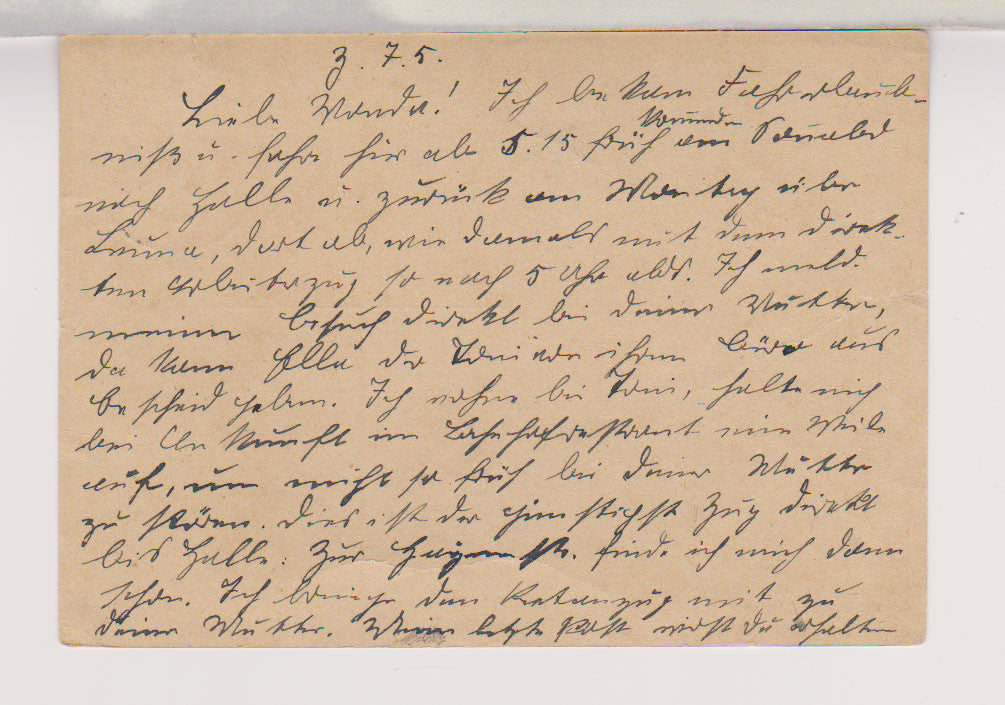 Z. 7.5.
Liebe Wanda! Ich bekam Fahrerlaub-
niß u. fahre hier ab 5.15 früh kommenden am Sonnabd
nach Halle u. zurück am Montag über
Leuna, dort ab, wie damals mit dem direk-
ten Arbeiterzug so nach 5 Uhr abds. Ich meld.
meinen Besuch direkt bei deiner Mutter,
da kann Ella der Toni von ihrem Büro aus
bescheid geben. Ich wohne bei Toni, halte mich
bei Ankunft im Bahnhofrestrant eine Weile
auf, um nicht so früh bei deiner Mutter
zu stören. Dies ist der günstigst Zug direkt
bis Halle. Zur str. finde ich mich dann
schon. Ich bringe den anzug mit zu
deiner Mutter. Meine letzte Post wirst du erhalten